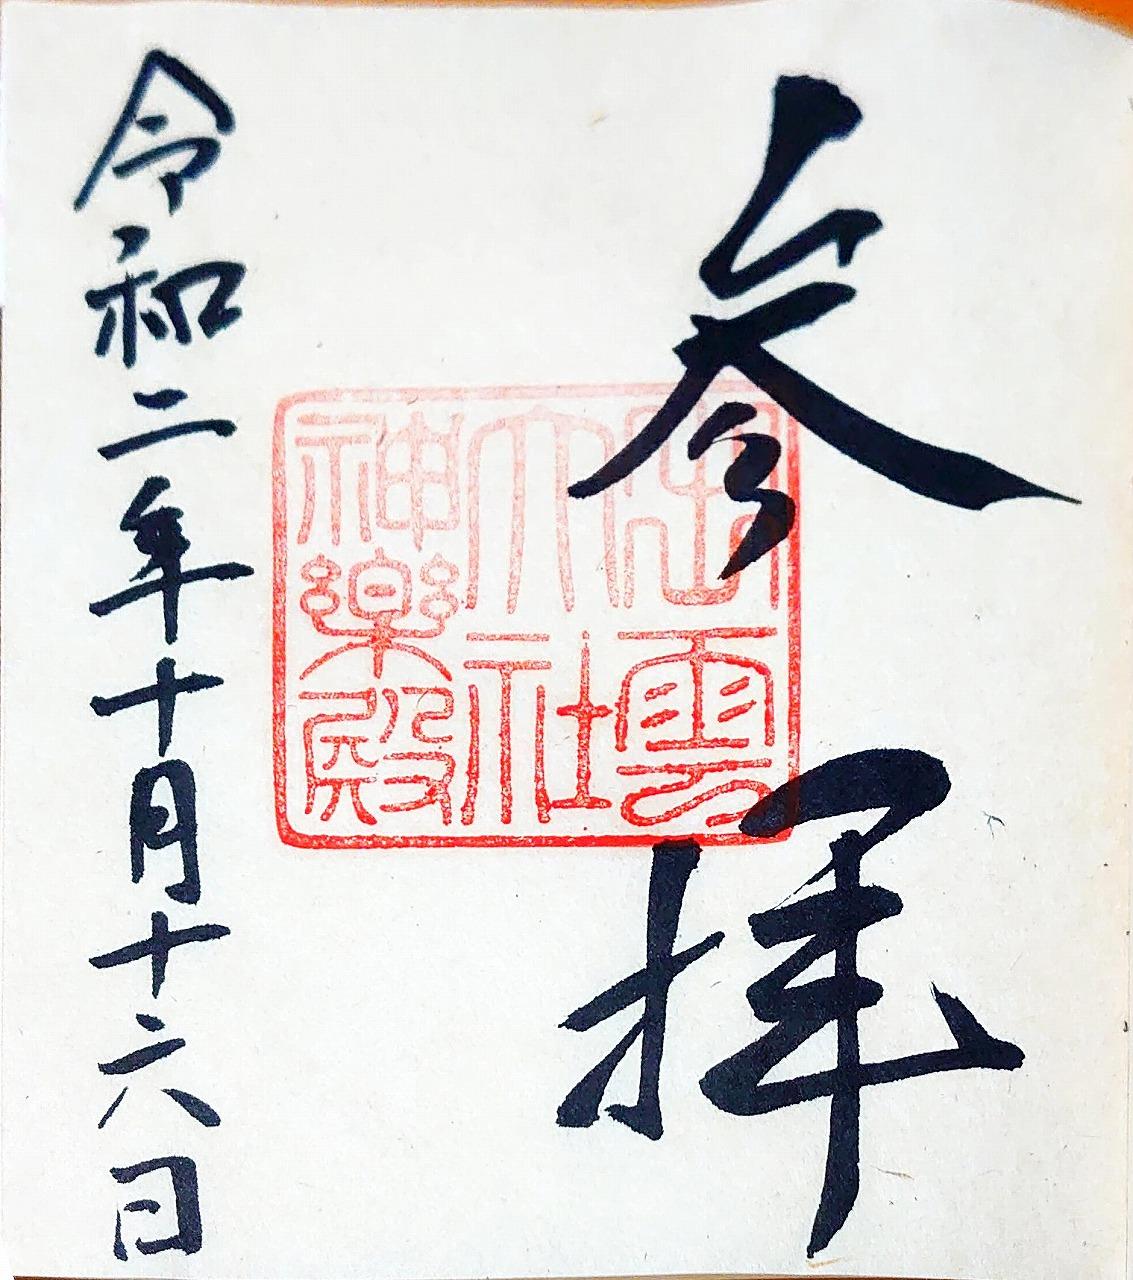 参拝
出雲
大社
神楽殿
令和二年十月十六日